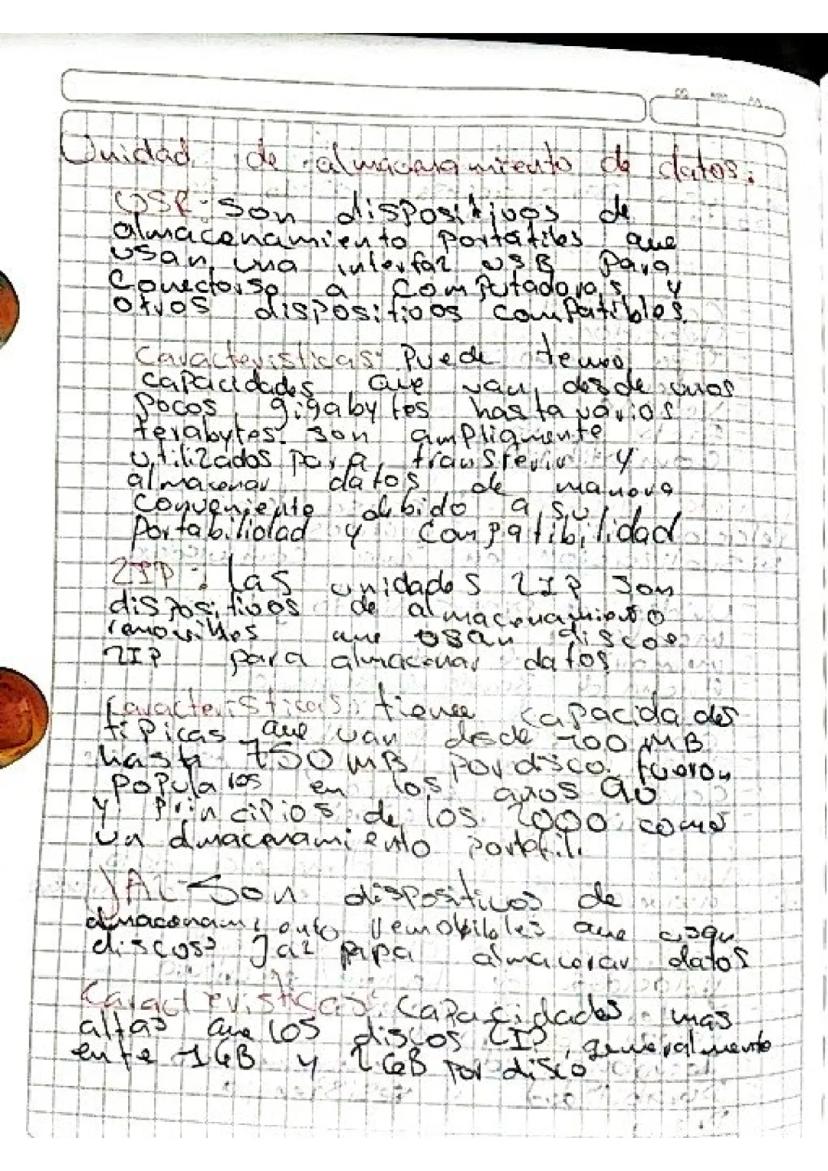 Unidad de almacenamiento de datos.
USB: Son dispositivos de
almacenamiento portatiles que
usan una interfaz USB para
Conectarse a computadoras y
otros dispositivos compatibles.
Caracteristicas: Puede tener
capacidades que van desde unos
pocos gigabytes hasta varios
terabytes. son ampliamente
utilizados para transferir y
almacenar datos de manera
conveniente debido a su
portabilidad y compatibilidad
ZIP: Las unidades ZIP son
dispositivos de almacenamiento
removibles que usan discos
ZIP para almacenar datos
Caracteristicas: tienen capacidades
tipicas que van desde 100 MB
hasta 750 MB por disco. fueron
populares en los años 90
y principios de los 2000 como
un almacenamiento portatil.
JAZ-Son dispositivos de
almacenamiento removibles que usan
discos Jaz para almacenar datos
Caracteristicas: Capacidades mas
altas que los discos ZIP, generalmente
ente 1GB y 2GB por disco